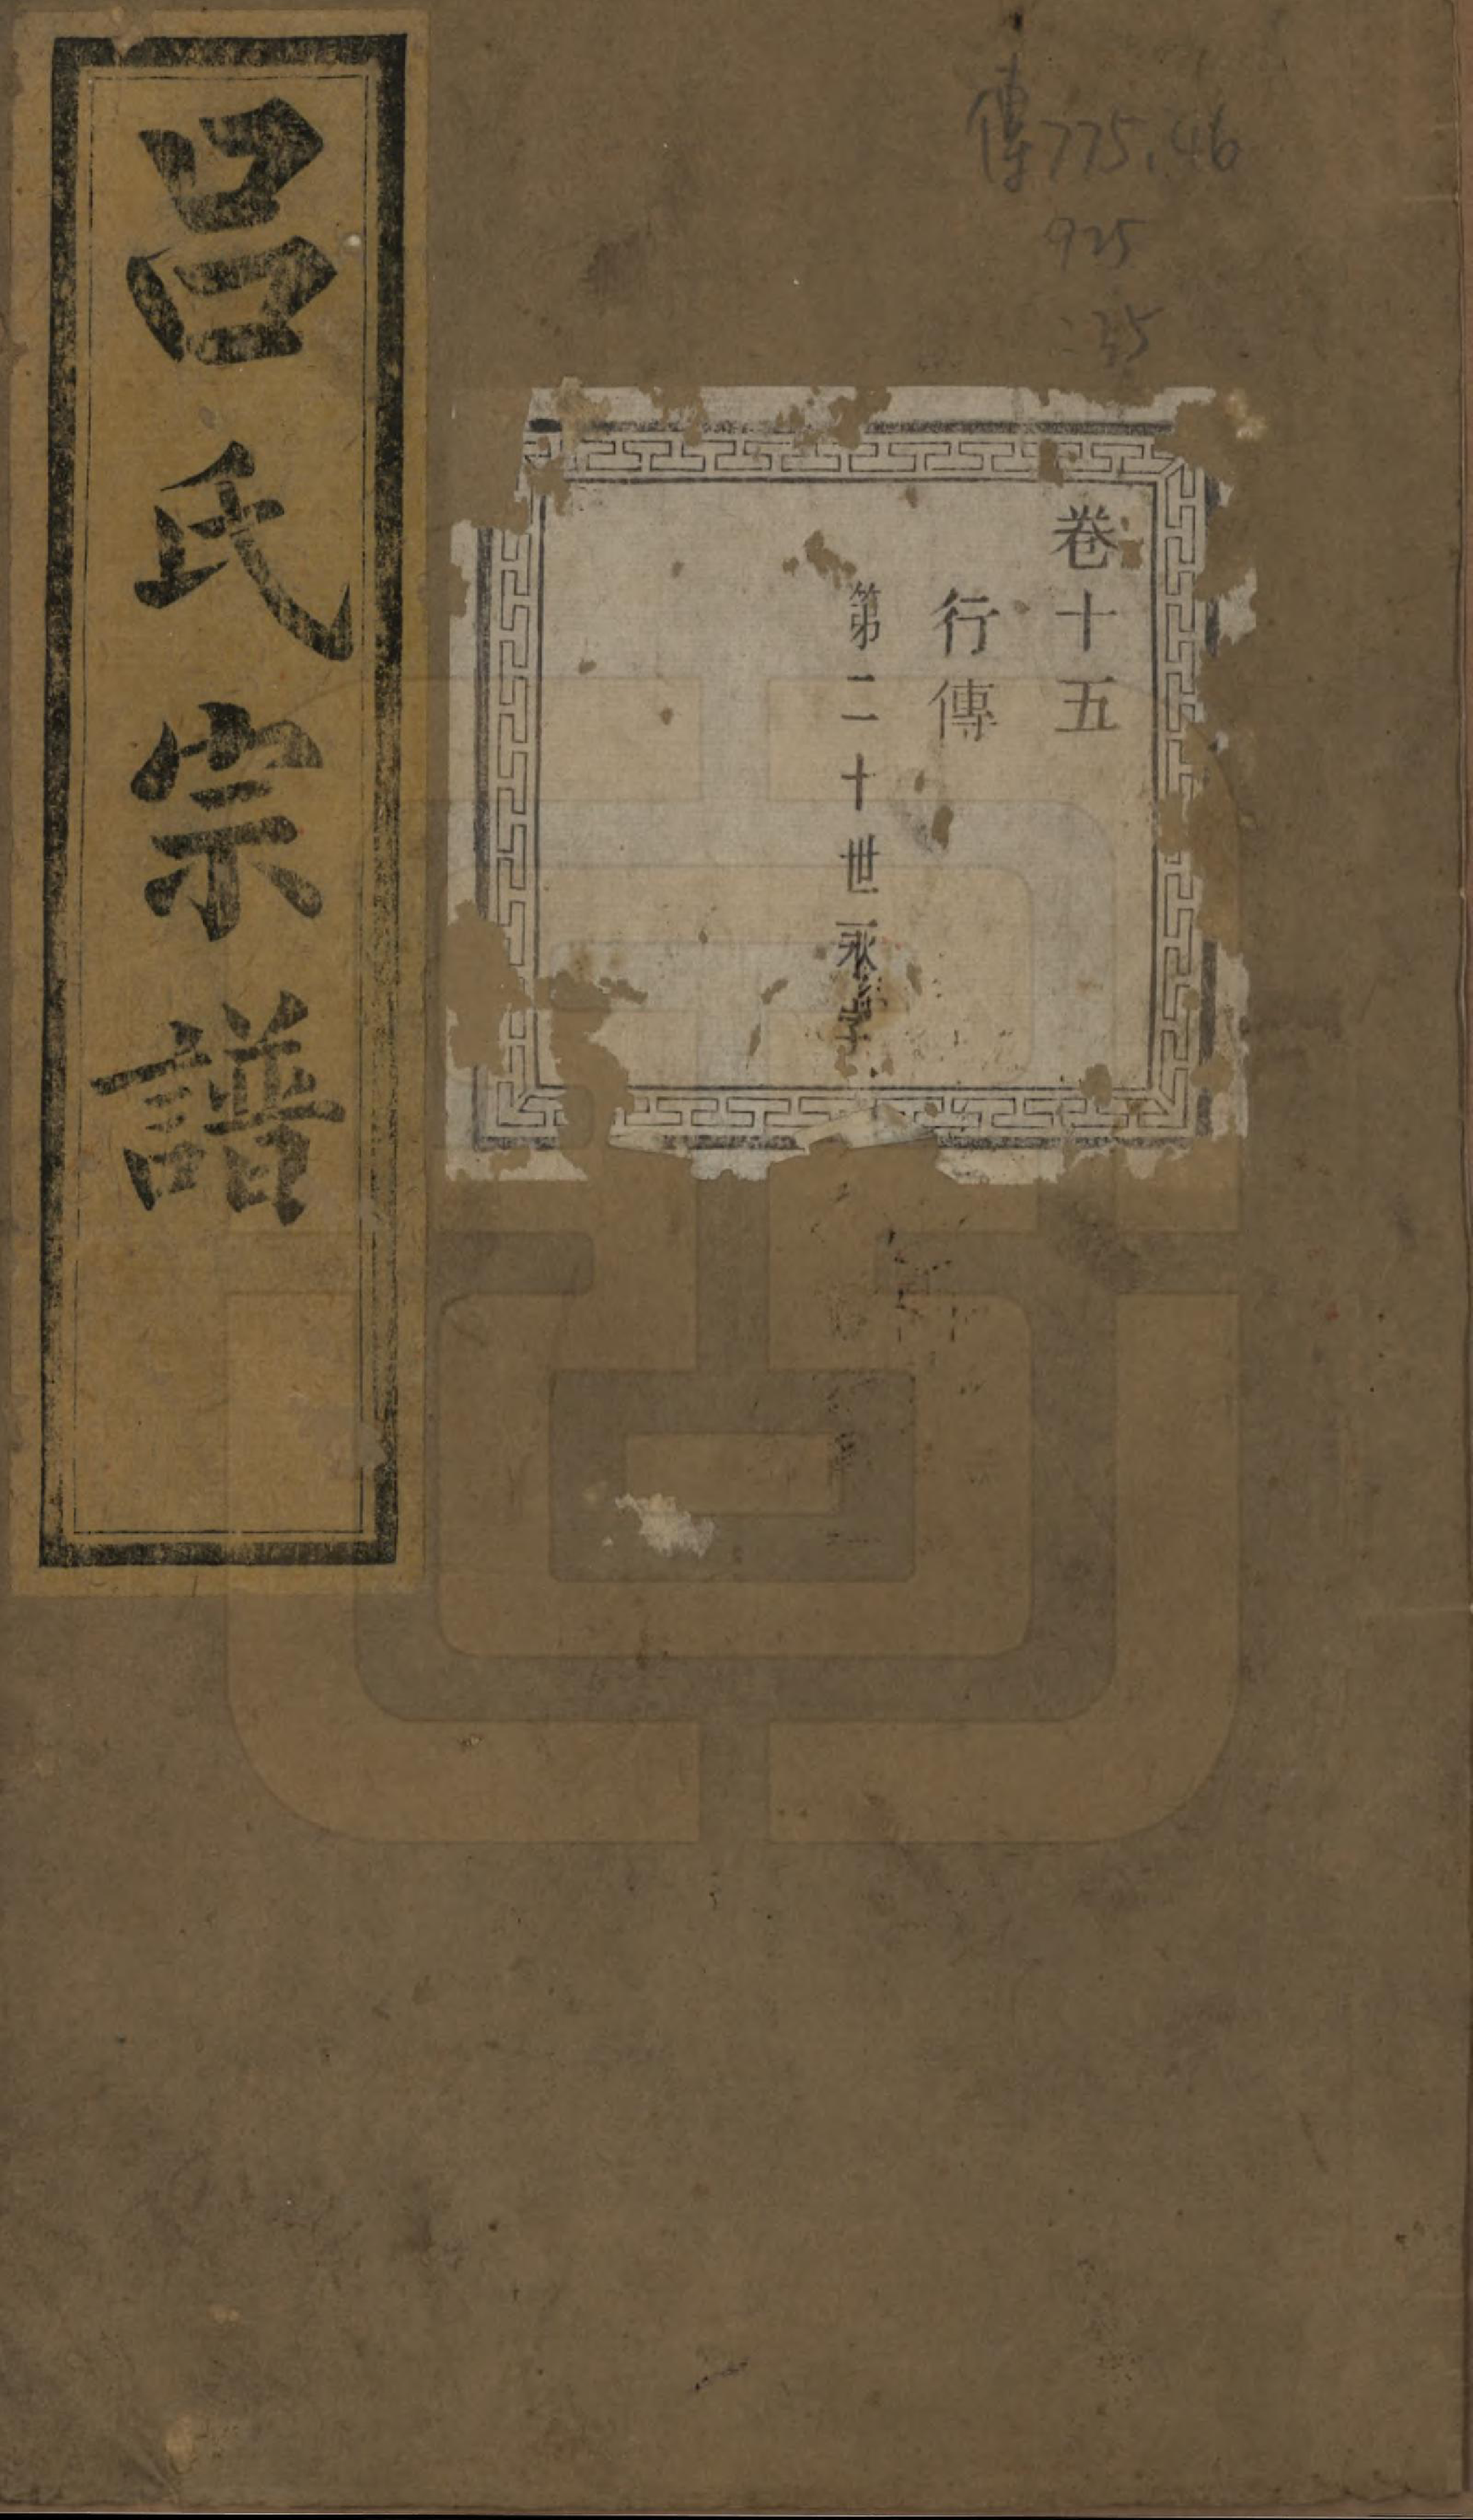 傳775.46
925
:35
卷十五
行傳
第二十世永字
呂氏宗譜